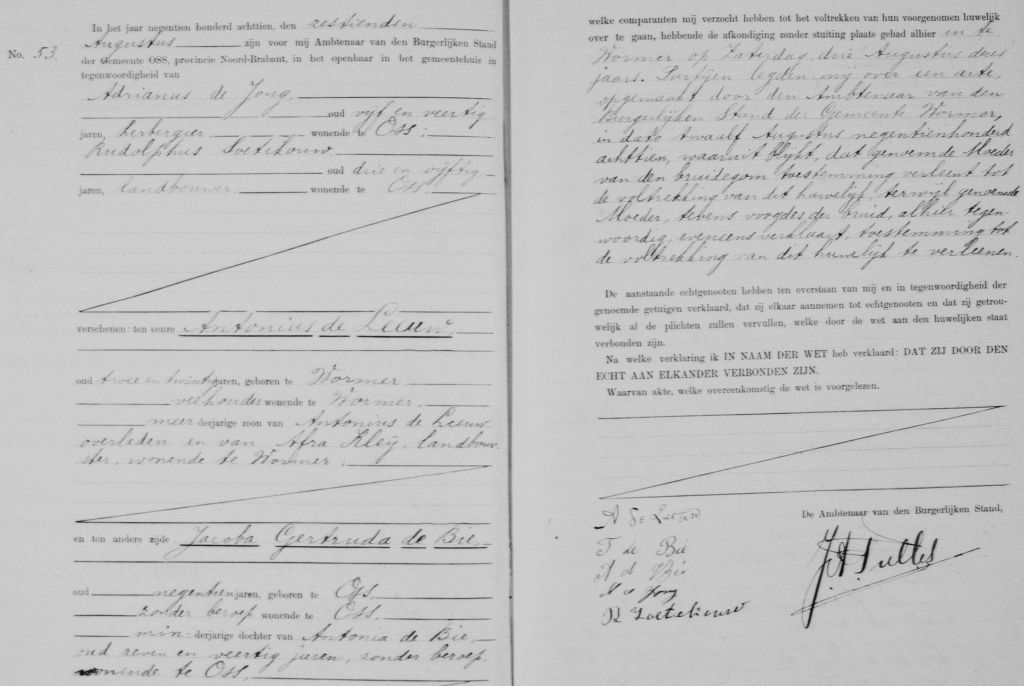 No. 53.
In het jaar negentien honderd achttien, den zestienden
Augustus zijn voor mij Ambtenaar van den Burgerlijken Stand
der Gemeente OSS, provincie Noord-Brabant, in het openbaar in het gemeentehuis in
tegenwoordigheid van
Adrianus de Jong,
oud vijf en veertig
jaren, herbergier wonende te Oss;
Rudolphus Soetekouw
oud drie en vijftig
jaren, landbouwer wonende te Oss
verschenen: ten eenre Antonius de Leeuw,
oud twee en twintig jaren, geboren te Wormer
veehouder wonende te Wormer,
meerderjarige zoon van Antonius de Leeuw
overleden en van Afra Kleij, landbouw-
ster, wonende te Wormer;
en ten andere zijde Jacoba Gertruda de Bie,
oud negentien jaren, geboren te Oss,
zonder beroep wonende te Oss,
minderjarige dochter van Antonia de Bie,
oud zeven en veertig jaren, zonder beroep
wonende te Oss,
welke comparanten mij verzocht hebben tot het voltrekken van hun voorgenomen huwelijk
over te gaan, hebbende de afkondiging zonder stuiting plaats gehad alhier en te
Wormer op Zaterdag, drie Augustus dezes
jaars. Partijen legden mij over een acte,
opgemaakt door den Ambtenaar van den
Burgerlijken Stand der Gemeente Wormer,
in dato twaalf Augustus negentienhonderd
achttien, waaruit blijkt, dat genoemde Moeder
van den bruidegom toestemming verleent tot
de voltrekking van dit huwelijk, terwijl genoemde
Moeder, tevens voogdes der bruid, alhier tegen-
woordig, eveneens verklaart, toestemming tot
de voltrekking van dit huwelijk te verleenen.
De aanstaande echtgenooten hebben ten overstaan van mij en in tegenwoordigheid der
genoemde getuigen verklaard, dat zij elkaar aannemen tot echtgenooten en dat zij getrou-
welijk al de plichten zullen vervullen, welke door de wet aan den huwelijken staat
verbonden zijn.
Na welke verklaring ik IN NAAM DER WET heb verklaard: DAT ZIJ DOOR DEN
ECHT AAN ELKANDER VERBONDEN ZIJN.
Waarvan akte, welke overeenkomstig de wet is voorgelezen.
De Ambtenaar van den Burgerlijken Stand,
A de Leeuw
J de Bie
A d Bie
A de Jong
R Zoetekouw